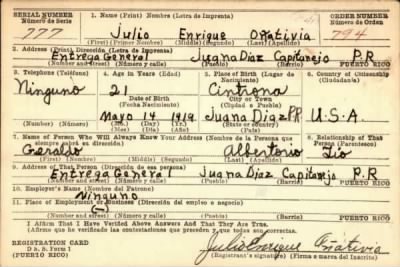 SERIAL NUMBER 1. Name (Print) Nombre (Letra de Imprenta) ORDER NUMBER
Número de Serie Número de Orden
777 Julio Enrique Oñativia 794
(First) (Primer Nombre) (Middle) (Segundo) (Last) (Apellido)
2. Address (Print) Dirección (Letra de Imprenta)
Entrega General Juana Diaz Capitanejo P.R
(Number and street) (Número y calle) (Pueblo) (Barrio) PUERTO RICO
3. Telephone (Teléfono) 4. Age in Years (Edad) 5. Place of Birth (Lugar de Nacimiento) 6. Country of Citizenship (Ciudadanía)
Ninguno 21 Cintrona
Date of Birth City or Town
(Fecha Nacimiento) (Ciudad o Pueblo)
Mayo 14 1919 Juana Diaz PR U.S.A.
(Number) (Número) (Mo.) (Day) (Yr.) (State or country)
(Mes) (Día) (Año) (Estado o País)
7. Name of Person Who Will Always Know Your Address (Nombre de la Persona que siempre sabrá su dirección) 8. Relationship of That Person (Parentesco)
Geraldo Albertorio Tio
(First) (Nombre) (Middle) (Segundo) (Last) (Apellido)
9. Address of That Person (Dirección de esa persona)
Entrega General Juana Diaz Capitanejo P.R
(Number and street) (Número y calle) (Pueblo) (Barrio) PUERTO RICO
10. Employer's Name (Nombre del Patrono)
Ninguno
11. Place of Employment or Business (Dirección del empleo o negocio)
(Number and street) (Número y calle) (Pueblo) (Barrio) PUERTO RICO
I Affirm That I Have Verified Above Answers And That They Are True.
Afirmo que he verificado las contestaciones que preceden y que todas son correctas.
REGISTRATION CARD Julio Enrique Oñativia
D. S. S. Form 1 (Registrant's signature) (Firma o marca del Inscrito)
PUERTO RICO